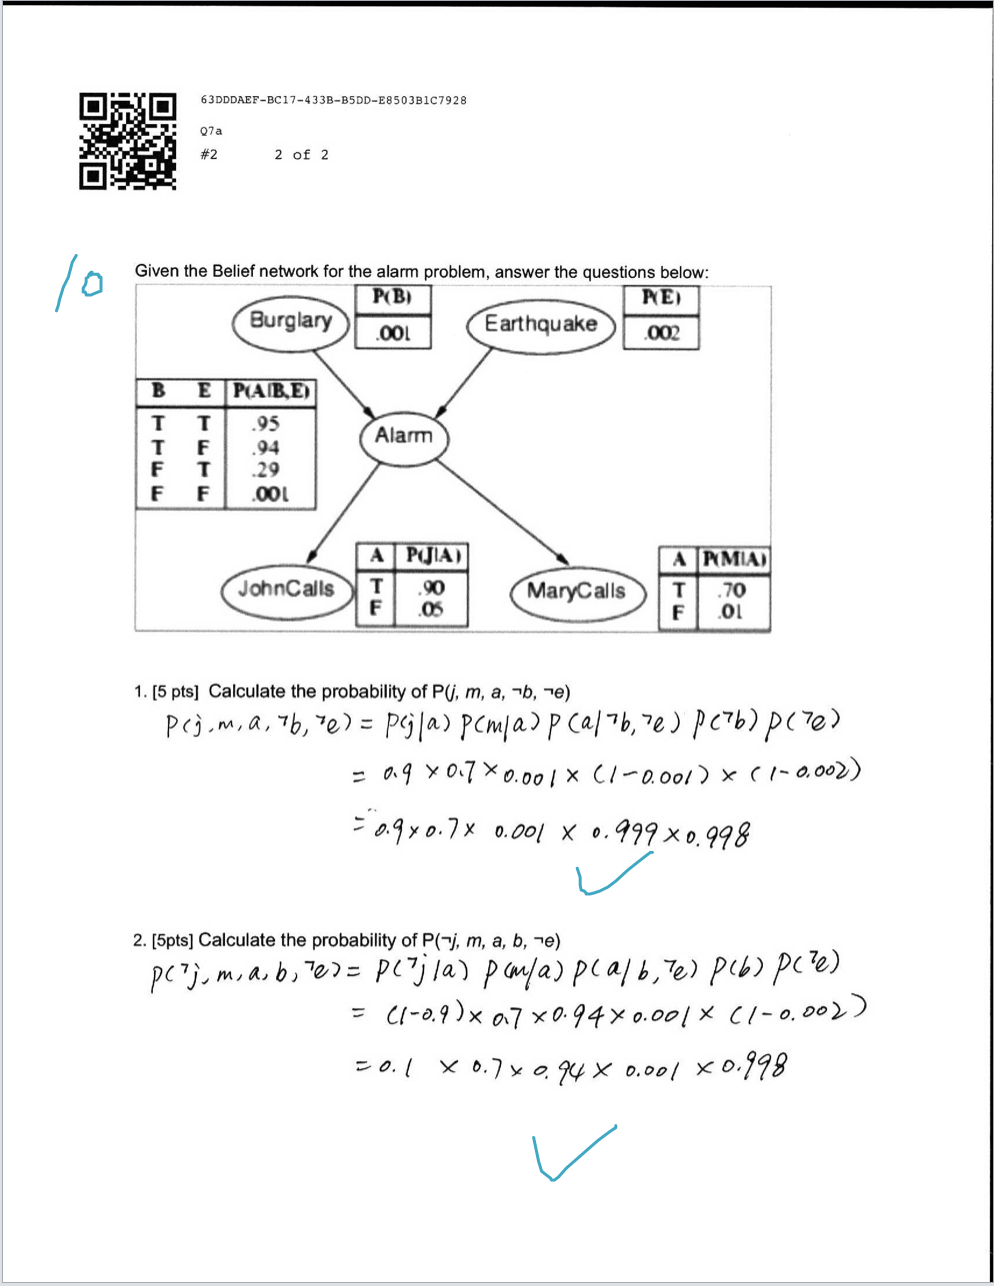 63DDDAEF-BC17-433B-B5DD-E8503B1C7928
Q7a
#2 2 of 2
10
Given the Belief network for the alarm problem, answer the questions below:
Burglary
P(B)
.001
Earthquake
P(E)
.002
B E P(A|B,E)
T T .95
T F .94
F T .29
F F .001
Alarm
JohnCalls
A P(J|A)
T .90
F .05
MaryCalls
A P(M|A)
T .70
F .01
1. [5 pts] Calculate the probability of P(j, m, a, ¬b, ¬e)
P(j, m, a, ¬b, ¬e) = P(j|a) P(m|a) P(a|¬b, ¬e) P(¬b) P(¬e)
= 0.9 × 0.7 × 0.001 × (1-0.001) × (1-0.002)
= 0.9 × 0.7 × 0.001 × 0.999 × 0.998
2. [5pts] Calculate the probability of P(¬j, m, a, b, ¬e)
P(¬j, m, a, b, ¬e) = P(¬j|a) P(m|a) P(a|b, ¬e) P(b) P(¬e)
= (1-0.9) × 0.7 × 0.94 × 0.001 × (1-0.002)
= 0.1 × 0.7 × 0.94 × 0.001 × 0.998